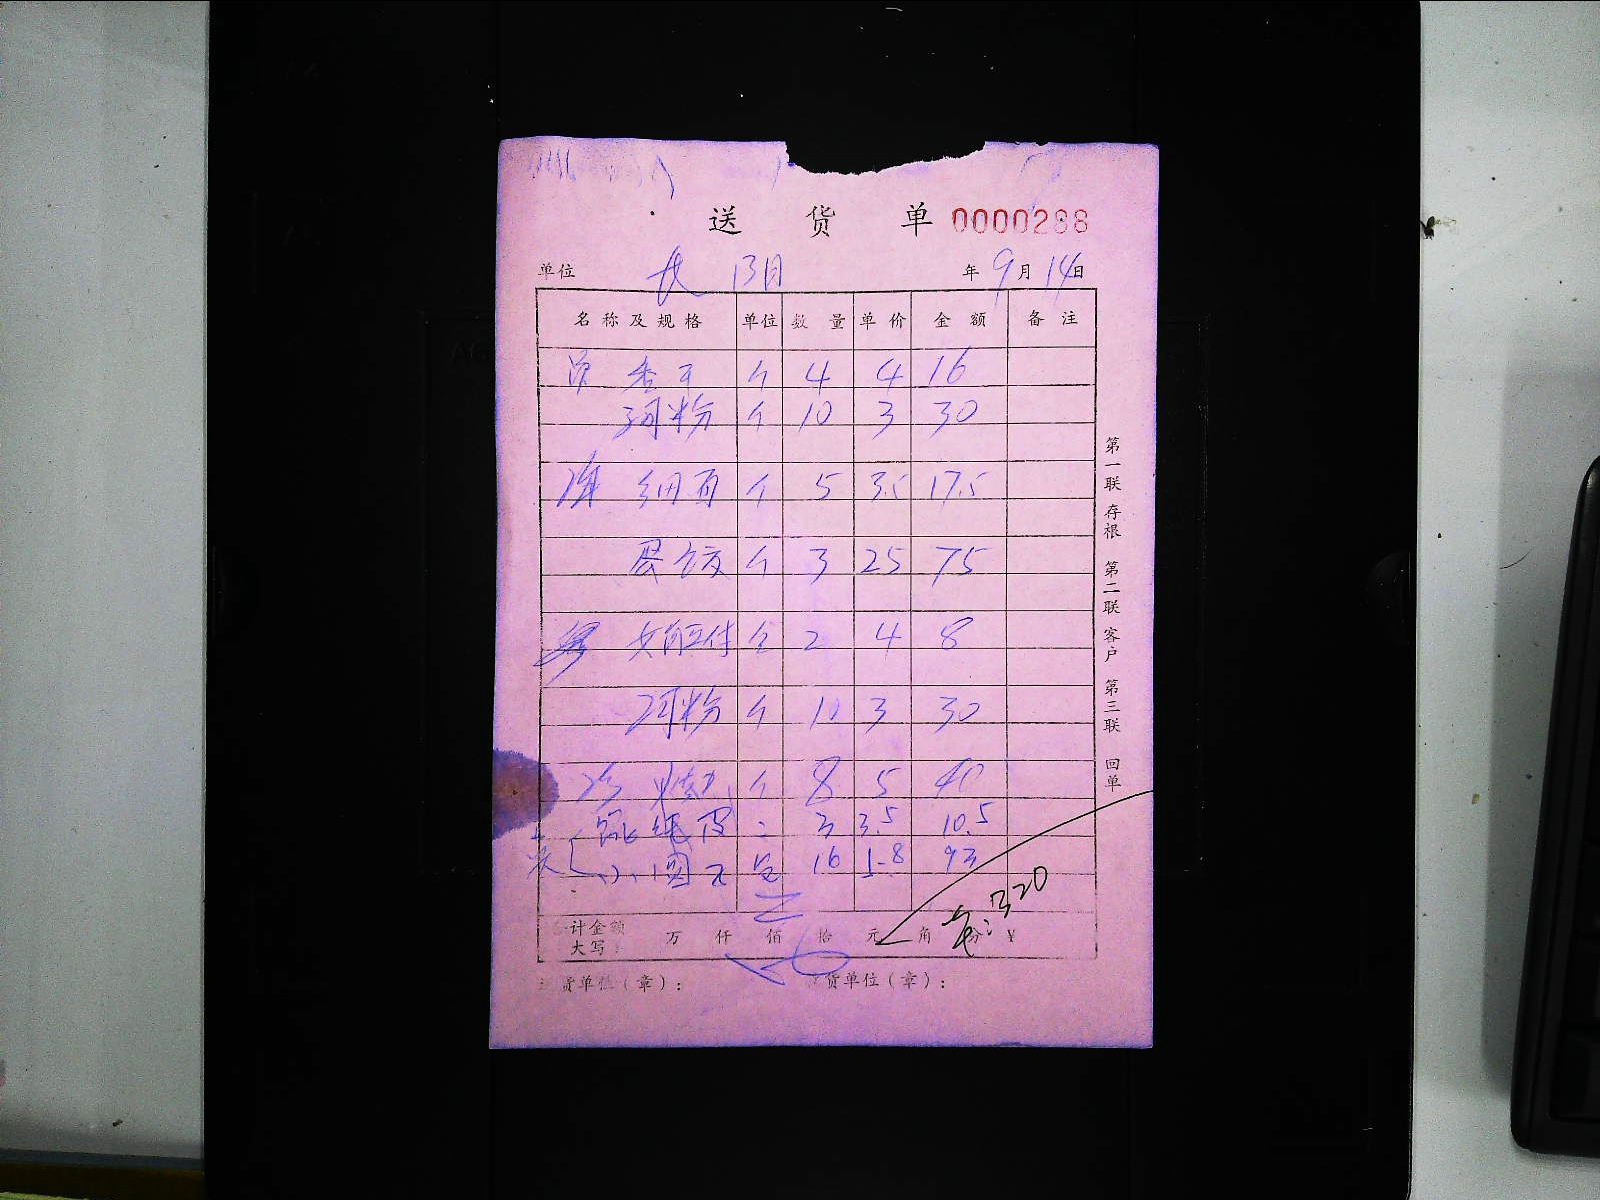 送 货 单 0000288
单位 长 13日 年 9月 14日
名称及规格 单位 数量 单价 金额 备注
香干 个 4 4 16
河粉 个 10 3 30
细面 个 5 3.5 17.5
蛋饺 个 3 25 75
2 4 8
河粉 个 10 3 30
个 8 5 40
皮 3 3.5 10.5
16 1.8 93
合计金额
大写: 万 仟 佰 拾 元 角 分 ¥
320
送货单位(章): 收货单位(章):
第一联 存根 第二联 客户 第三联 回单